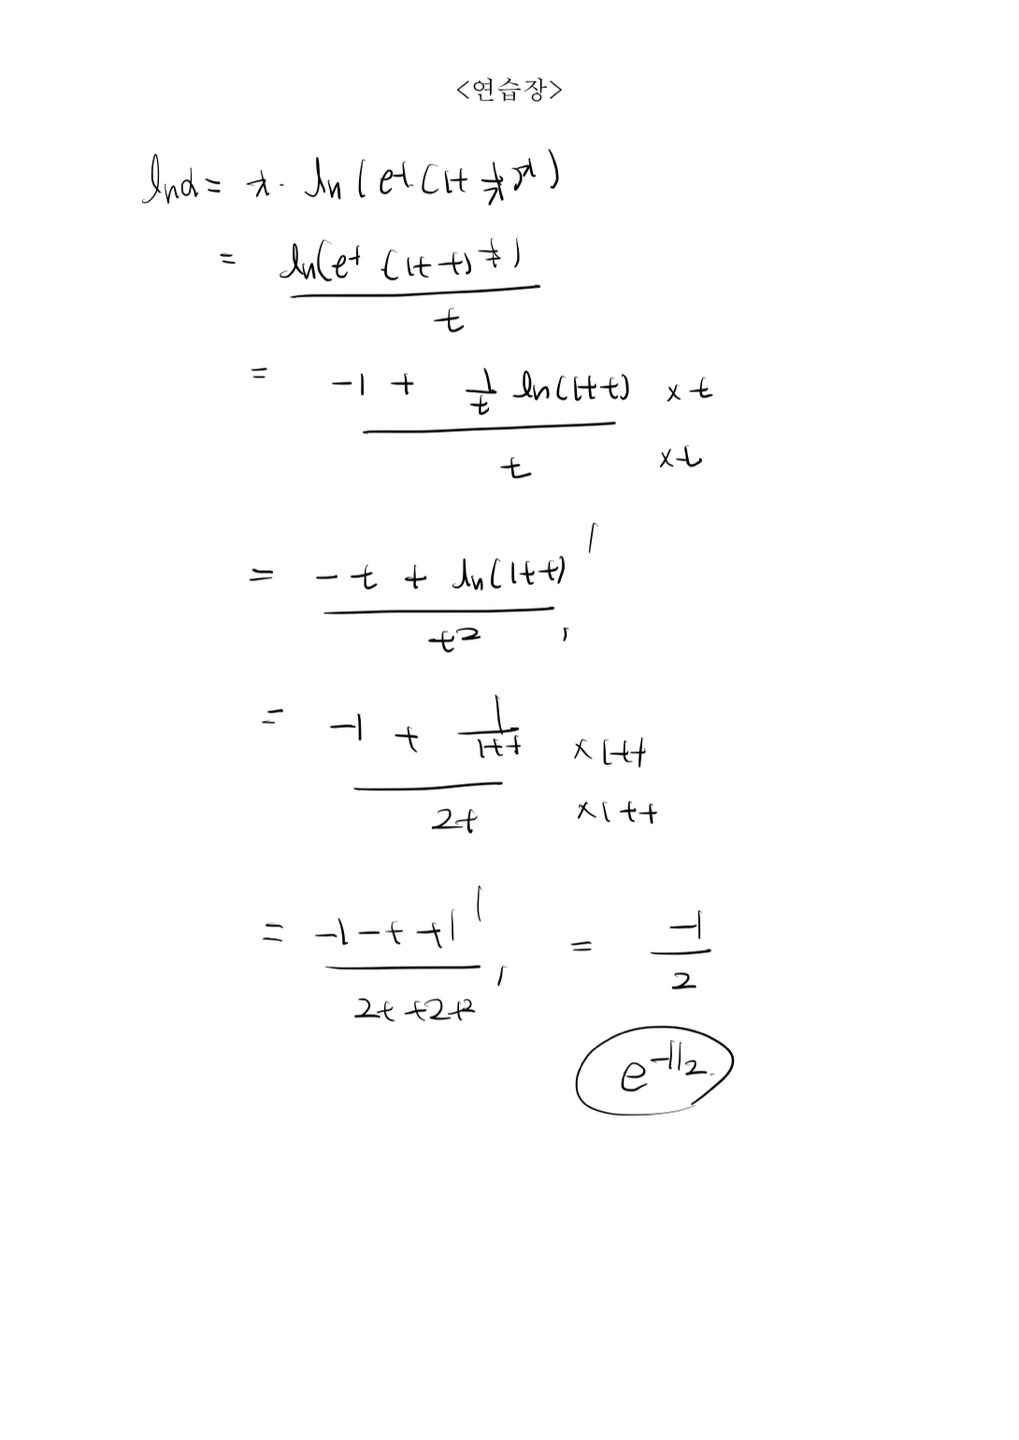 <연습장>
lnα = x · ln(e⁻¹(1+1/x)ˣ)
= ln(e⁻¹(1+t)^(1/t)) / t
= (-1 + 1/t ln(1+t)) / t ×t ×t
= (-t + ln(1+t))' / t² '
= (-1 + 1/(1+t)) / 2t ×1+t ×1+t
= (-1-t+1)' / (2t+2t²)' = -1/2
e^(-1/2)